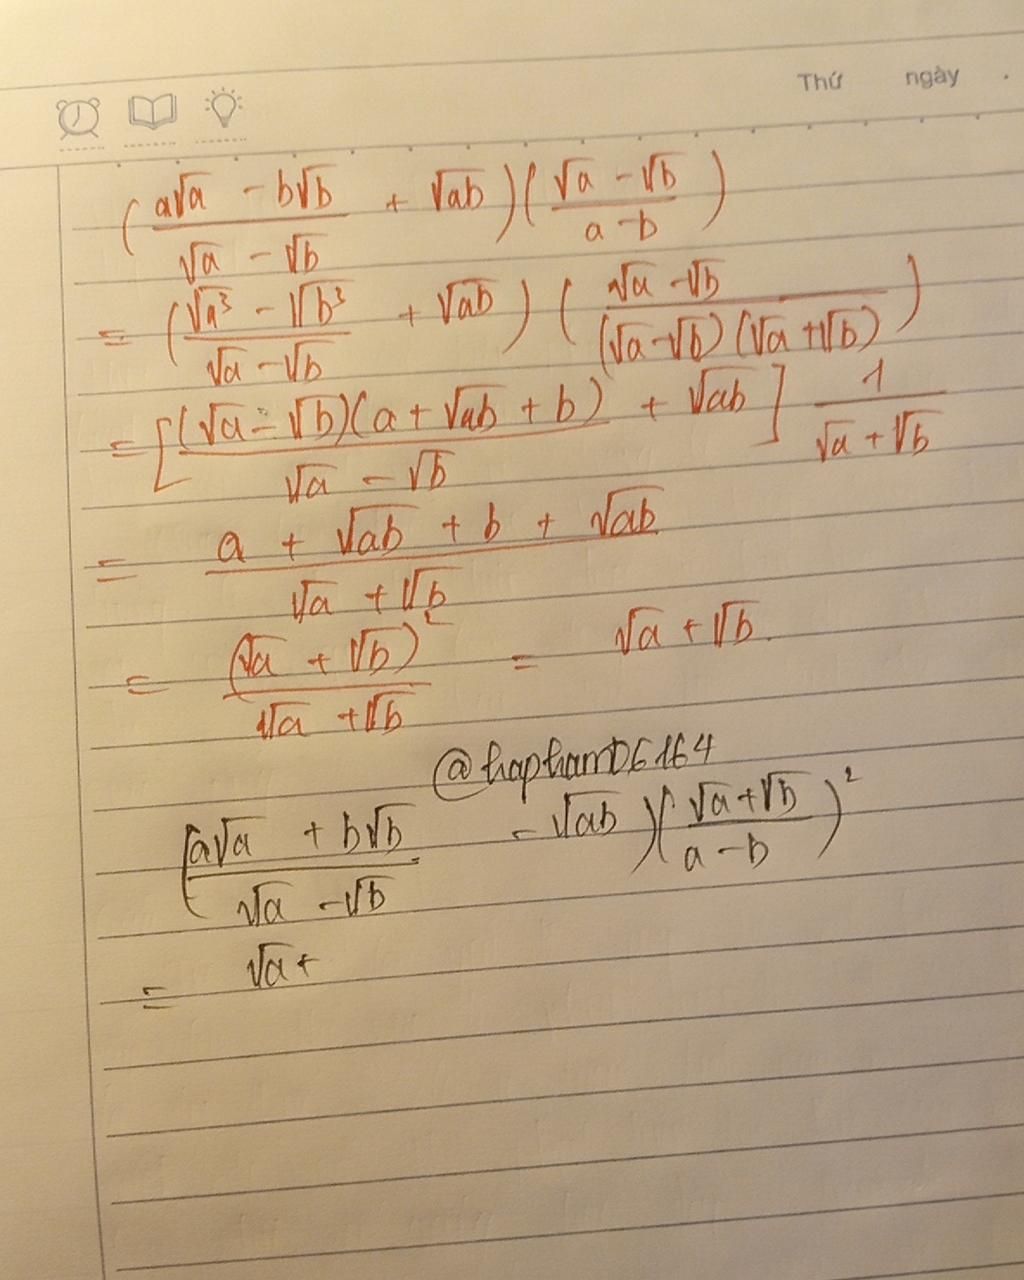 Thứ ngày .
(a√a - b√b / √a - √b + √ab)(√a - √b / a - b)
= (√a³ - √b³ / √a - √b + √ab)(√a - √b / (√a - √b)(√a + √b))
= [(√a - √b)(a + √ab + b) / √a - √b + √ab] 1 / √a + √b
= a + √ab + b + √ab / √a + √b
= (√a + √b)² / √a + √b = √a + √b.
(a√a + b√b / √a - √b - √ab)(√a + √b / a - b)²
= √a +